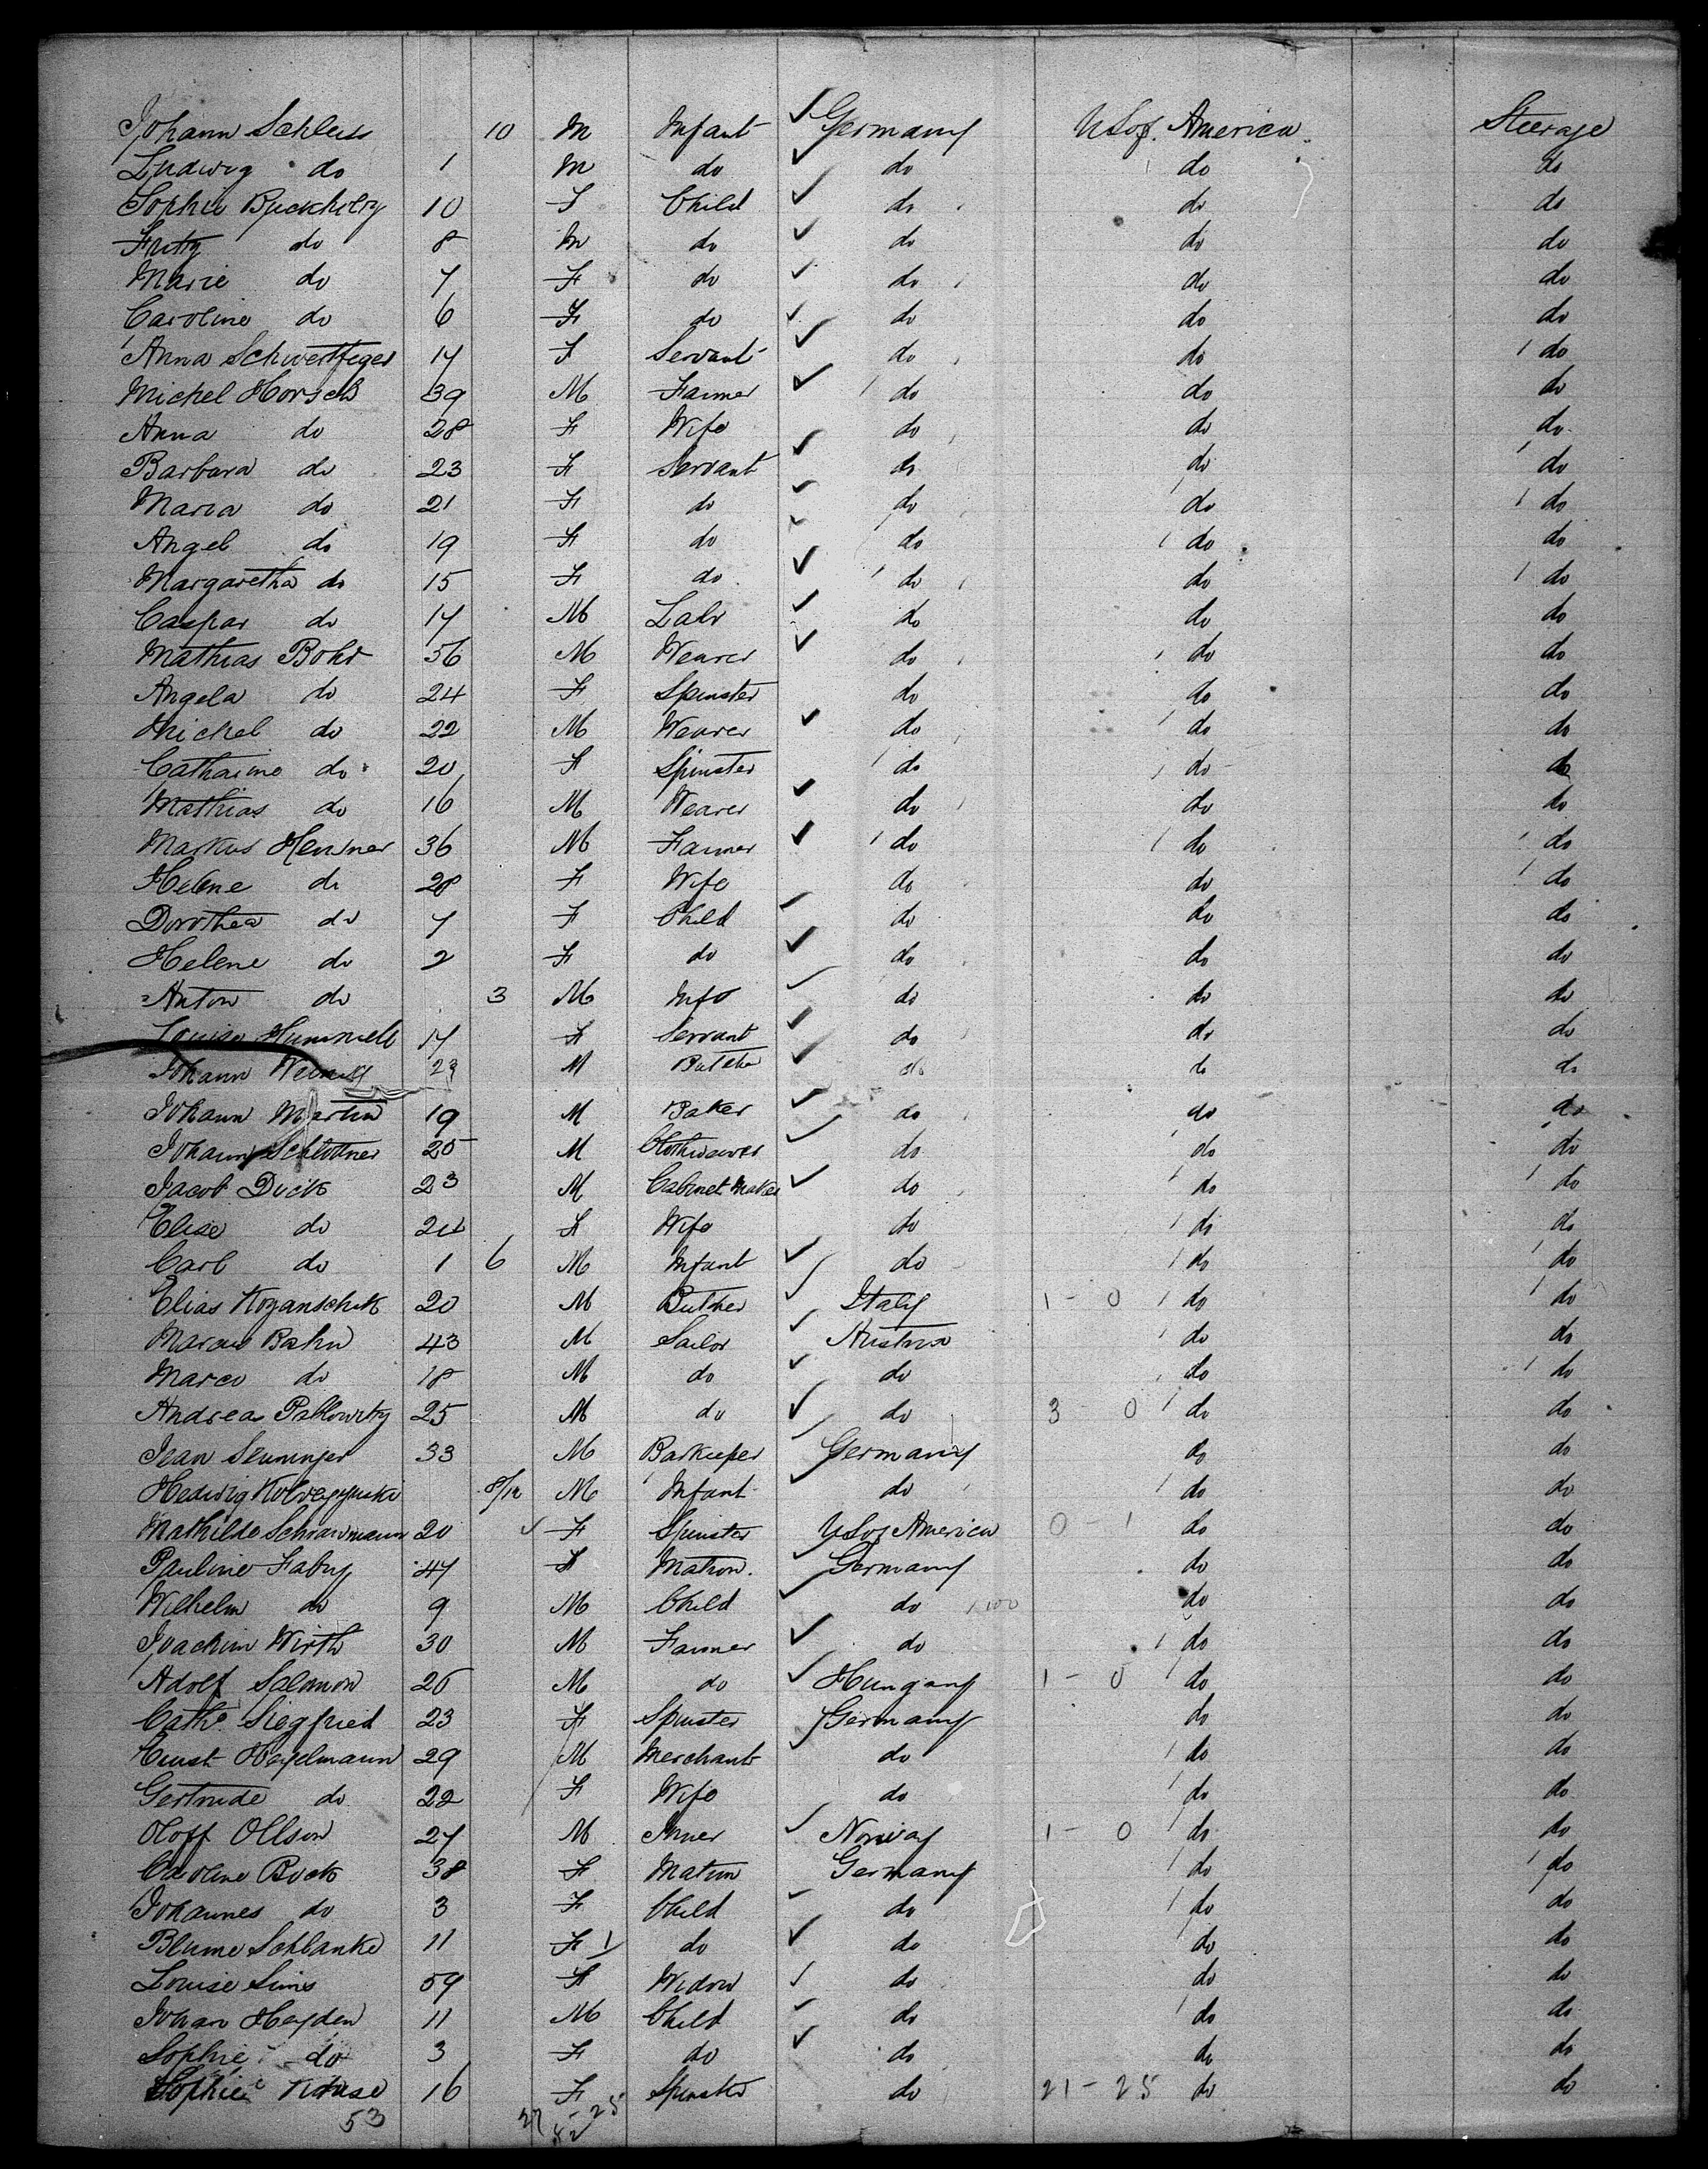 Johann Schleiss 10 M Infant Germany U S of America Steerage
Ludwig do 1 M do do do do
Sophie Buckholtz 10 F Child do do do
Fritz do 8 M do do do do
Marie do 7 F do do do do
Caroline do 6 F do do do do
Anna Schwertfeger 17 F Servant do do do
Michel Horsch 39 M Farmer do do do
Anna do 28 F Wife do do do
Barbara do 23 F Servant do do do
Maria do 21 F do do do do
Angel do 19 F do do do do
Margaretha do 15 F do do do do
Caspar do 17 M Labr do do do
Mathias Bohr 56 M Weaver do do do
Angela do 24 F Spinster do do do
Michel do 22 M Weaver do do do
Catharine do 20 F Spinster do do do
Mathias do 16 M Weaver do do do
Markus Hensner 36 M Farmer do do do
Helene do 28 F Wife do do do
Dorothea do 7 F Child do do do
Helene do 2 F do do do do
Anton do 3 M Inft do do do
Louise Hummell 17 F Servant do do do
Johann 23 M Butcher do do do
Johann Martin 19 M Baker do do do
Johann Schlottner 25 M Clothweaver do do do
Jacob Dick 23 M Cabinet Maker do do do
Elise do 24 F Wife do do do
Carl do 1 6 M Infant do do do
Elias Koganschek 20 M Butcher Italy 1 - 0 do do
Marcus Bahn 43 M Sailor Austria do do
Marco do 18 M do do do do
Andreas Pablowitz 25 M do do 3 0 do do
Jean 33 M Barkeeper Germany do do
Hedwig 8/12 M Infant do do do
Mathilde Schiarmann 20 F Spinster U S of America 0 - 1 do do
Pauline Fabry 47 F Matron Germany do do
Wilhelm do 9 M Child do do do
Joachim Wirth 30 M Farmer do do do
Adolf Salomon 25 M do Hungary 1 - 0 do do
Cathe Siegfried 23 F Spinster Germany do do
Ernst Hegelmann 29 M Merchant do do do
Gertrude do 22 F Wife do do do
Oloff Ollson 27 M Miner Norway 1 - 0 do do
Caroline Bock 38 F Matron Germany do do
Johannes do 3 F Child do do do
Blume Schlanke 11 F do do do do
Louise Sims 59 F Widow do do do
Johan Heyden 11 M Child do do do
Sophie do 3 F do do do do
Sophie Kruse 16 F Spinster do 21 - 25 do do
53 27 - 25
52